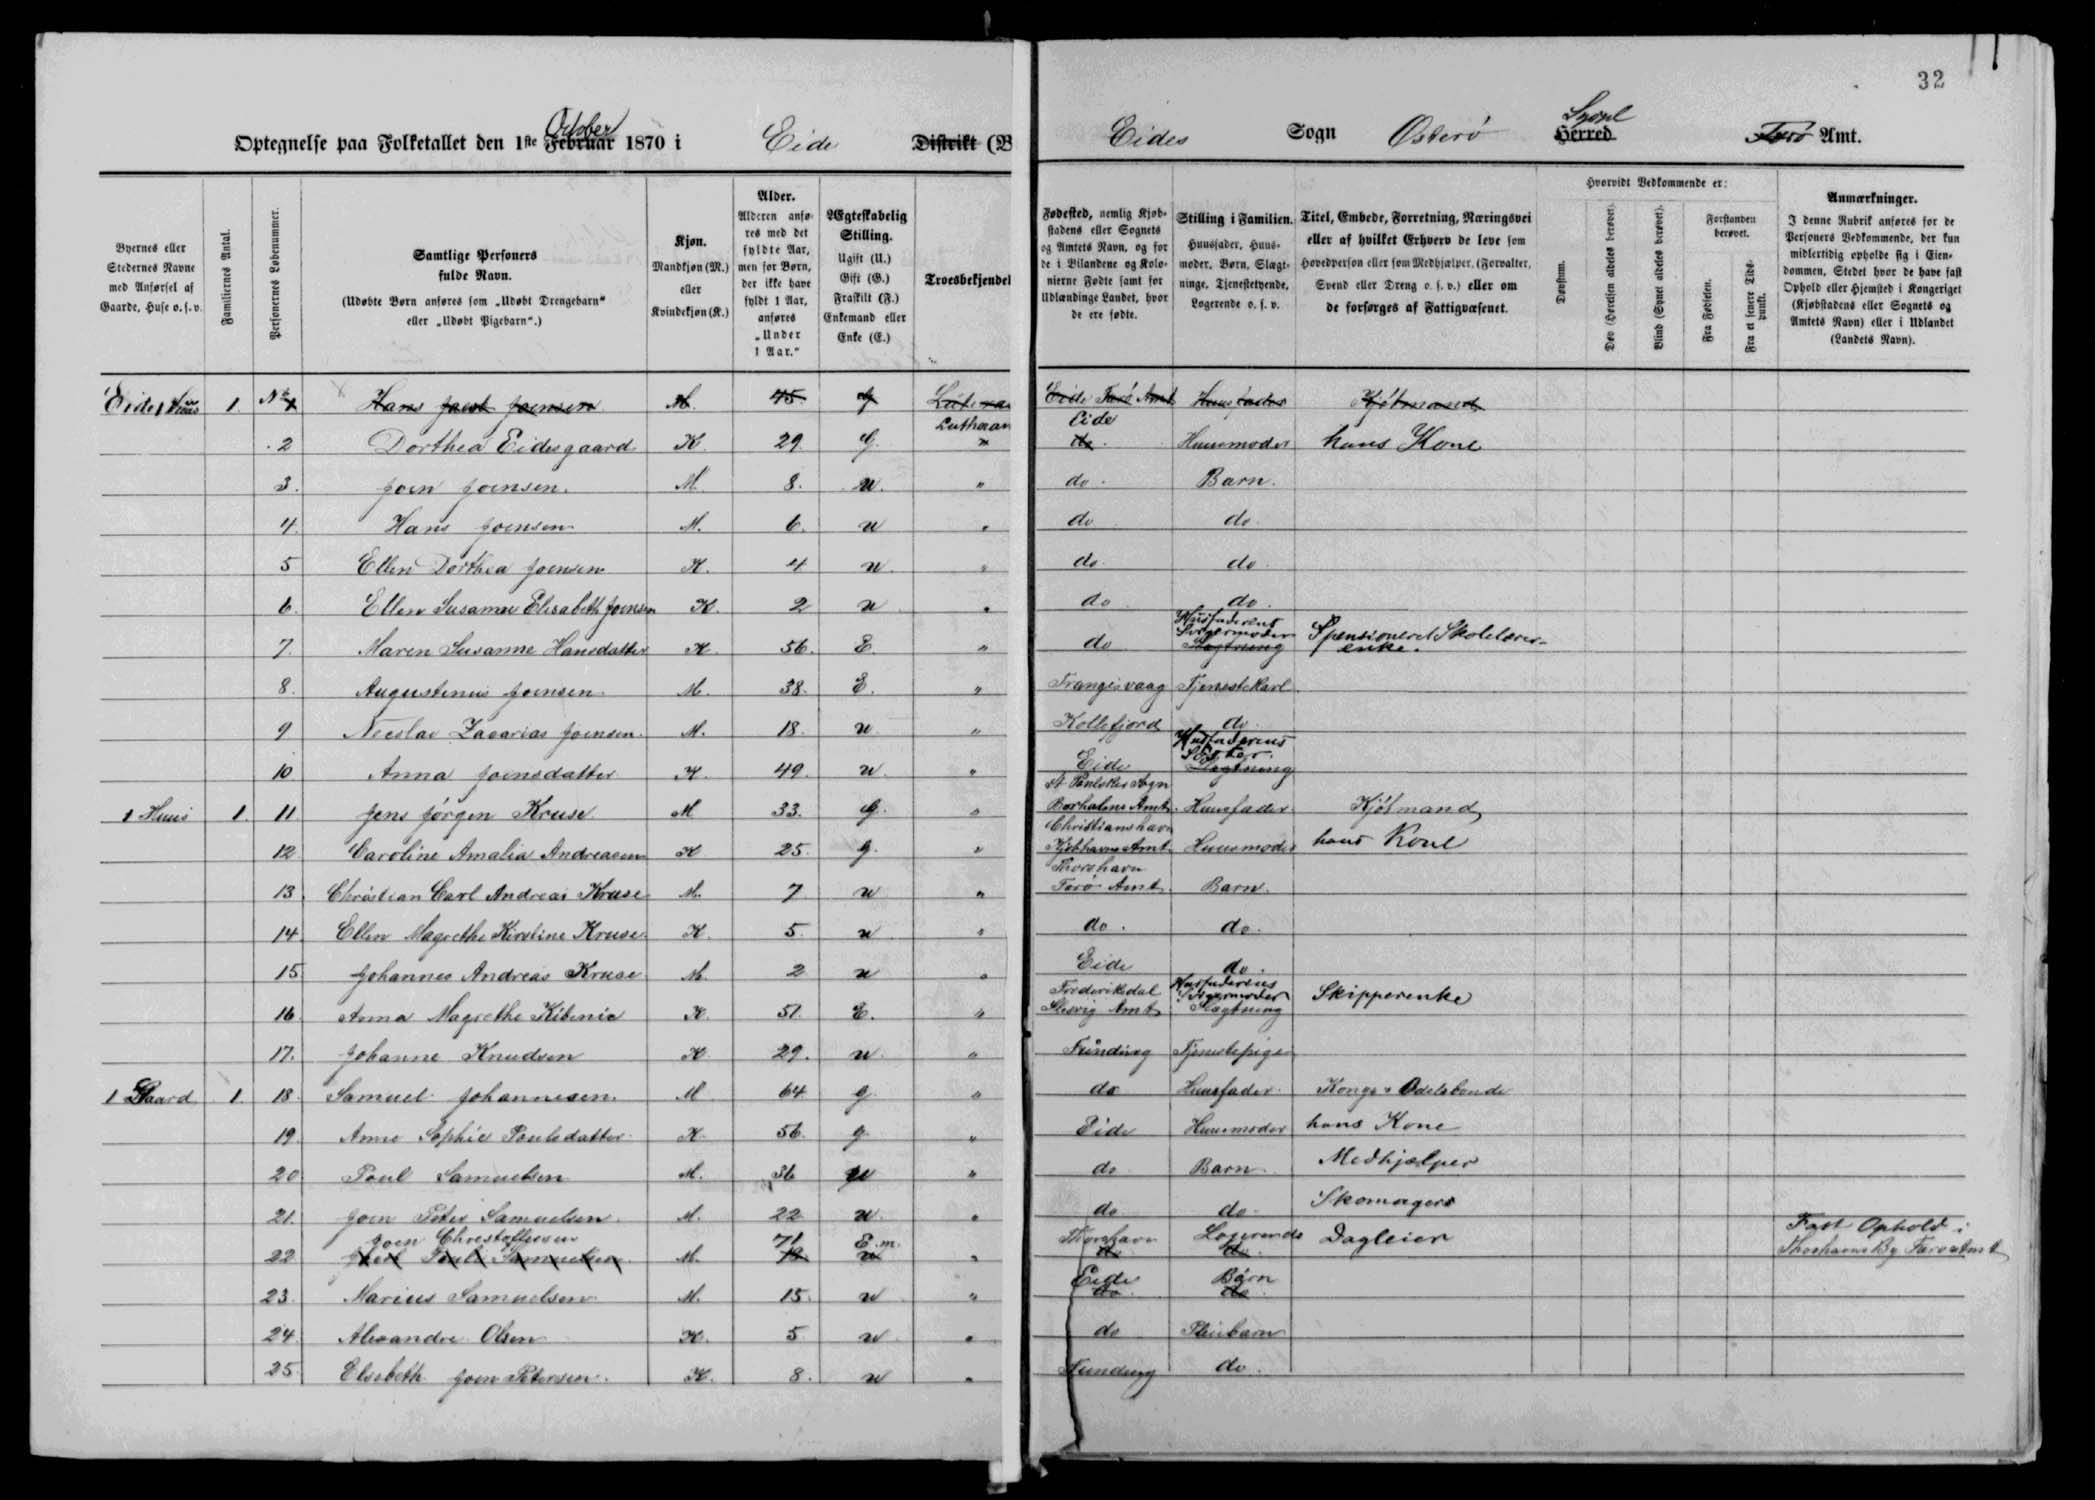 32
Optegnelse paa Folketallet den 1ste Februar October 1870 i Eide Distrikt (B
Eides Sogn Østerø Herred Syssel Færø Amt.
Byernes eller Stedernes Navne med Anførsel af Gaarde, Huse o. s. v.
Familiernes Antal.
Personernes Løbenummer.
Samtlige Personers fulde Navn.
(Udøbte Børn anføres som „Udøbt Drengebarn“ eller „Udøbt Pigebarn“.)
Kjøn.
Mandkjøn (M.) eller Kvindekjøn (K.)
Alder.
Alderen anføres med det fyldte Aar, men for Børn, der ikke have fyldt 1 Aar, anføres „Under 1 Aar.“
Ægteskabelig Stilling.
Ugift (U.) Gift (G.) Fraskilt (F.) Enkemand eller Enke (E.)
Troesbekjendel
Fødested, nemlig Kjøbstadens eller Sognets og Amtets Navn, og for de i Bilandene og Kolonierne Fødte samt for Udlændinge Landet, hvor de ere fødte.
Stilling i Familien.
Huusfader, Huusmoder, Børn, Slægtninge, Tjenestetyende, Logerende o. s. v.
Titel, Embede, Forretning, Næringsvei eller af hvilket Erhverv de leve som Hovedperson eller som Medhjælper, (Forvalter, Svend eller Dreng o. s. v.) eller om de forsørges af Fattigvæsenet.
Hvorvidt Vedkommende er:
Døvstum.
Døv (Hørelsen aldeles berøvet).
Blind (Synet aldeles berøvet).
Forstanden berøvet.
Fra Fødselen.
Fra et senere Tidspunkt.
Anmærkninger.
I denne Rubrik anføres for de Personers Vedkommende, der kun midlertidig opholde sig i Eiendommen, Stedet hvor de have fast Ophold eller Hjemsted i Kongeriget (Kjøbstadens eller Sognets og Amtets Navn) eller i Udlandet (Landets Navn).
Eide 1 Huus 1. No 1 Hans Jacob Joensen M. 45. g Eide Færö Amt Huusfader Kjöbmand
2 Dorthea Eidesgaard K 29. g. Lutheran Eide do. Huusmoder hans Kone
3. Joen Joensen. M. 8. u. " do. Barn.
4. Hans Joensen M. 6. u " do do.
5 Ellen Dorthea Joensen K. 4 u. " do. do.
6. Ellen Susanne Elisabeth Joensen K. 2 u " do do.
7. Maren Susanne Hansdatter K. 56. E. " do Husfaderens Svigermoder Slægtning pensioneret Skolelærerenke.
8. Augustinus Joensen M. 38. E. " Trangisvaag Tjenestekarl
9 Nicolai Zacarias Joensen. M. 18. u. " Kollefjord do.
10 Anna Joensdatter K. 49. u. " Eide Husfaderens Söster. Slægtning
1 Huus 1. 11 Jens Jörgen Kruse M 33. g. " Bornholms Amt. Huusfader Kjöbmand
12 Caroline Amalia Andreasen K 25. g. " Christianshavn Kjöbhavns Amt. Huusmoder hans Kone
13. Christian Carl Andreas Kruse M. 7 u " Thorshavn Færö Amt Barn.
14. Ellen Magrethe Kirstine Kruse K. 5. u " do. do.
15. Johannes Andreas Kruse M. 2 u " Eide do.
16. Anna Magrethe K 51. E. " Frederiksdal Slesvig Amt Husfaderens Svigermoder Slægtning Skipperenke
17. Johanne Knudsen K. 29. u. " Funding Tjenestepige
1 Gaard 1. 18. Samuel Johannesen. M 64 g. " do Huusfader Konge & Odelsbonde
19. Anne Sophie Poulsdatter K. 56. g. " Eide Huusmoder hans Kone
20 Poul Samuelsen M. 36 u " do Barn Medhjælper
21. Joen Peter Samuelsen M. 22 u. " do do. Skomager
22 Joen Christoffersen Poul Samuelsen M. 71 E.m. u " Thorshavn do Logerende do. Dagleier Fast Ophold i Thorshavns By Færø Amt
23. Marius Samuelsen M. 15. u " Eide do. Børn do.
24. Alexandre Olsen K. 5 u " do Pleiebarn
25. Elsebeth Joen Petersen. K. 8. u " Funding do.